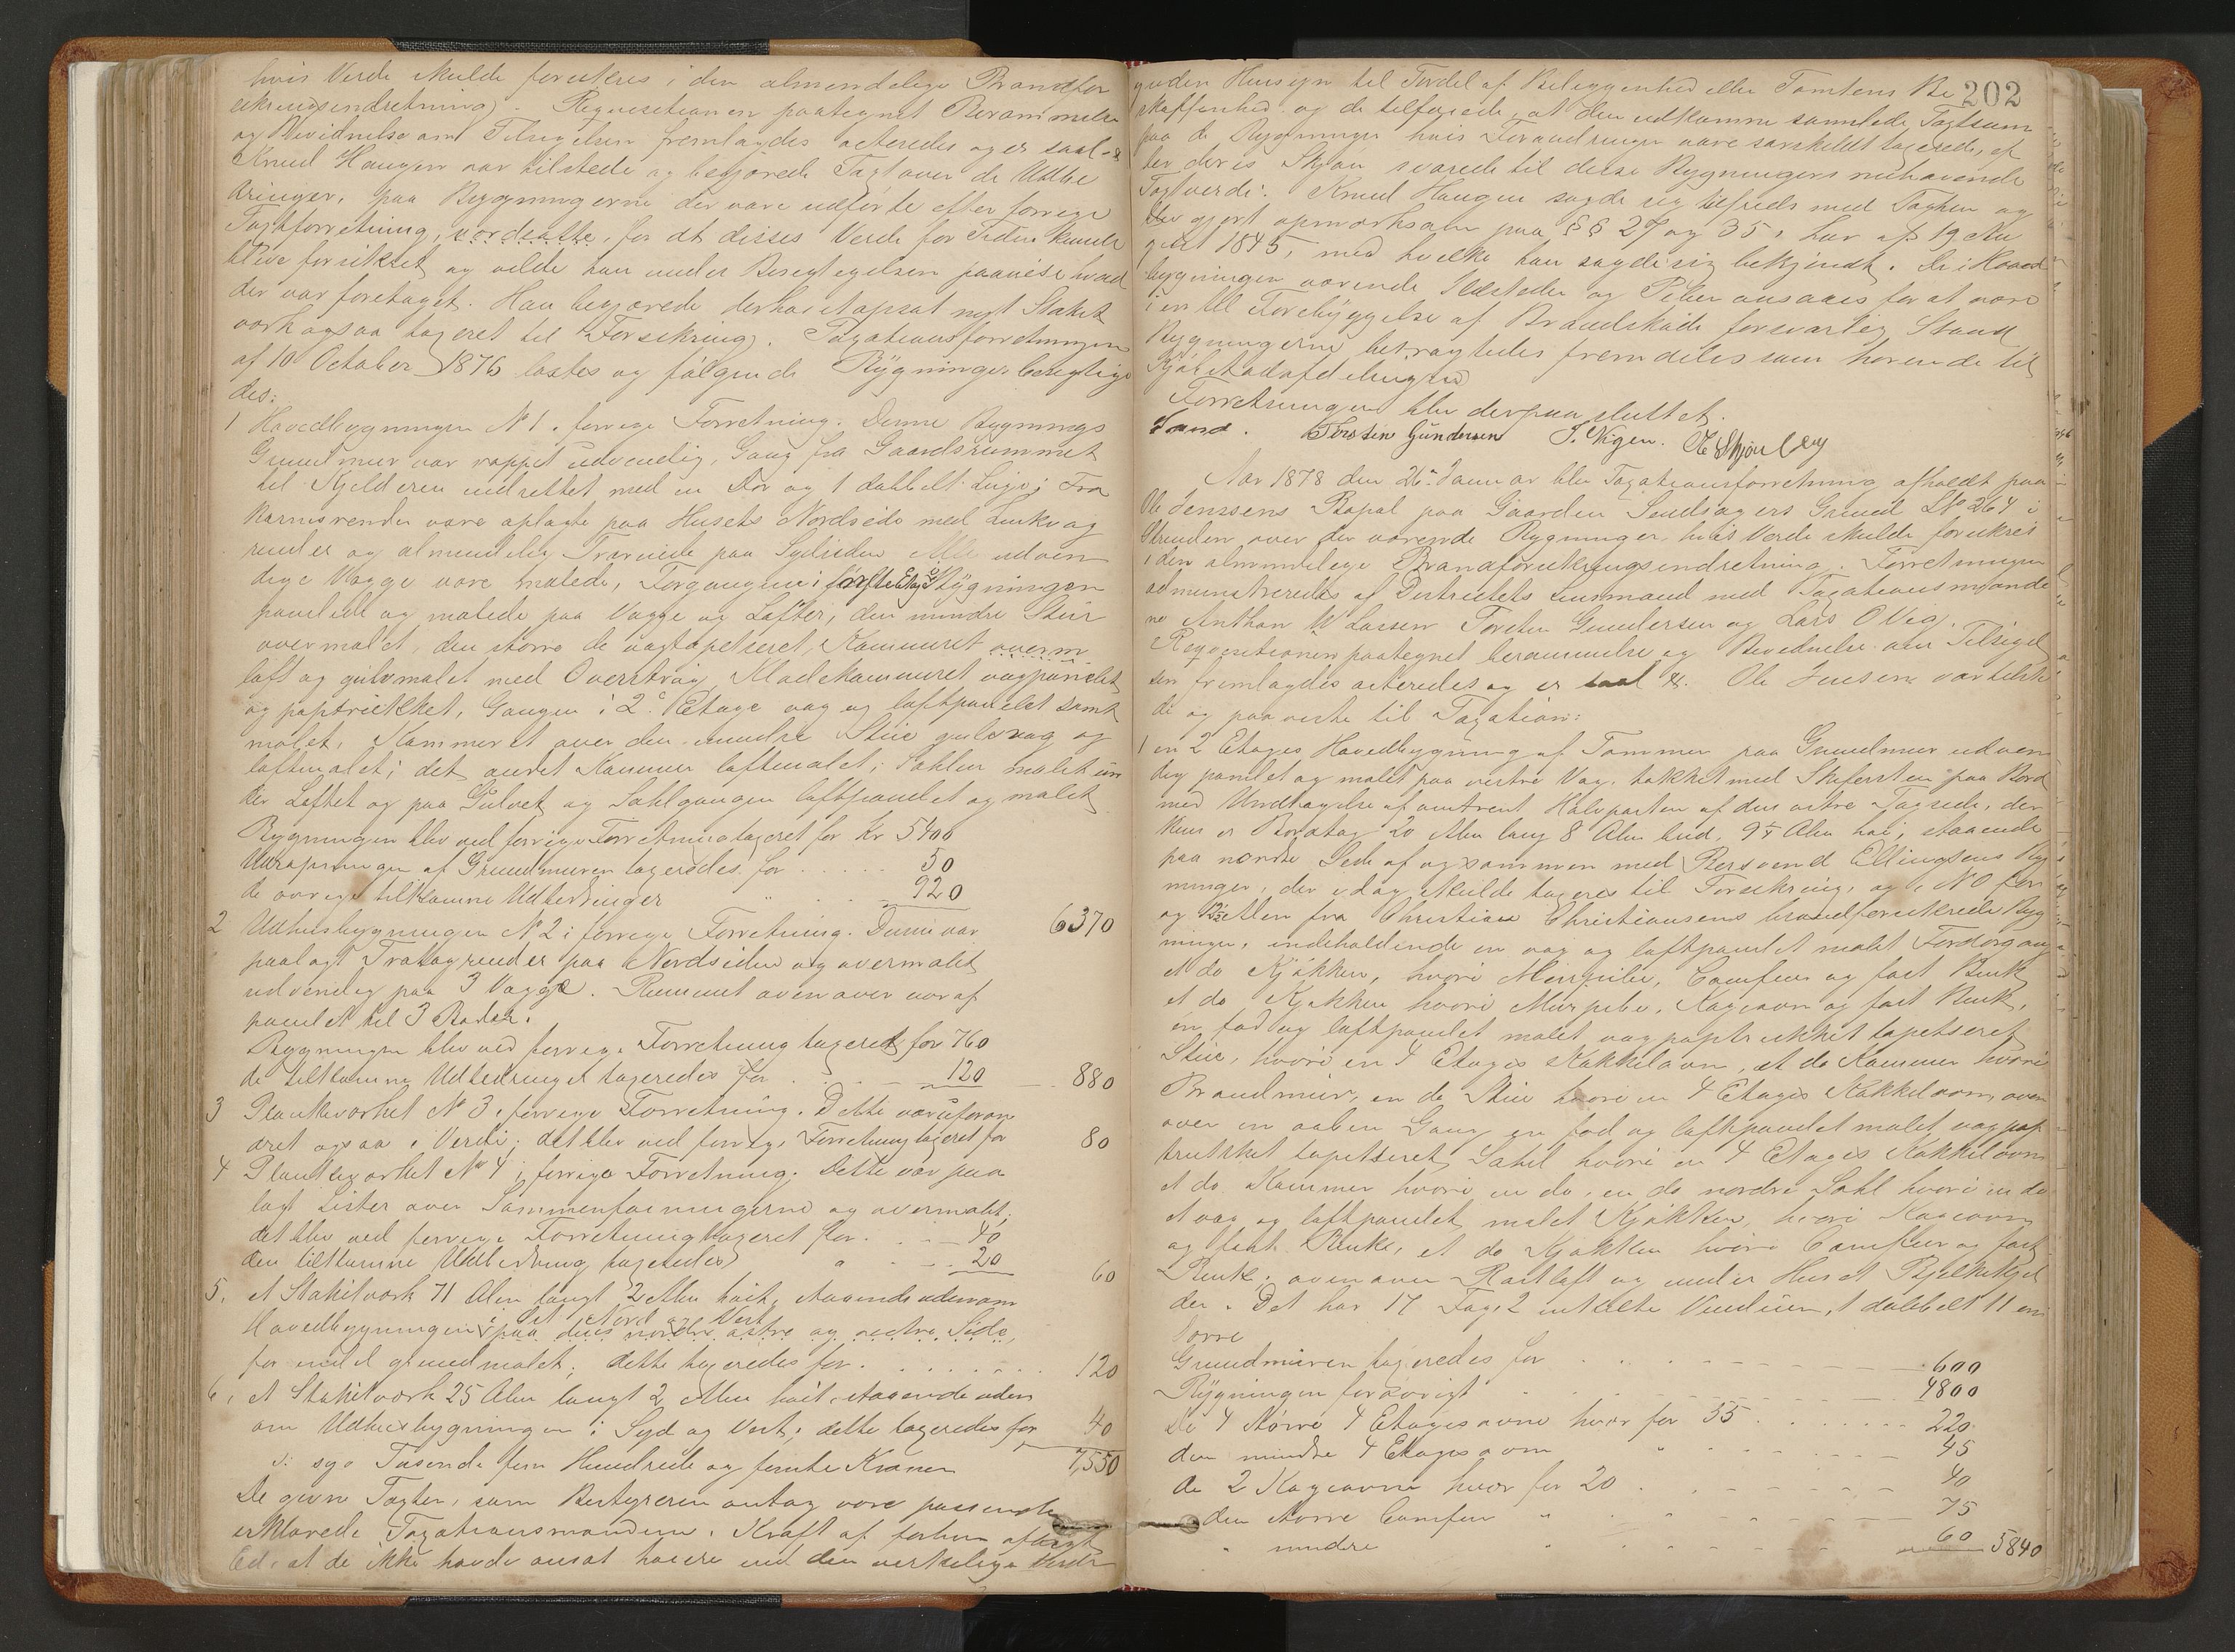 hvis Verdi skulde forsikres i den almindelige Brandfor
sikringsindretning. Requisitionen paategnet Berammelse
og Bevidnelse om Tilsigelsen fremlagdes acteredes og er saal. &
Knud Haugen var tilstede og begjærede Taxt over de Udbe
dringer, paa Bygningerne der vare udførte efter forrige
Taxtforretning, værdsatte, for at disses Verdi for Tiden kunde
blive forsikret og vilde han under Besigtigelsen paavise hvad
der var foretaget. Han begjærede derhos et opsat nyt Stakit
værk ogsaa taxeret til Forsikring. Taxationsforretningen
af 10 October 1876 læstes og følgende Bygninger besigtige
des:
1 Hovedbygningen No 1 i forrige Forretning. Denne Bygnings
Grundmur var rappet udvendig, Gang fra Gaardsrummet
til Kjelderen indrettet med en Dør og 1 dobbelt Luge; Træ
karnisrender vare oplagte paa Husets Nordside med
render og almindelig Trærende paa Sydsiden Alle udven
dige Vægge vare malede, Forgangen i første Etage i Bygningen
panelede og malede paa Vægge og Lofter, den mindre Stue
overmalet, den større do vægtapetseret, Kammeret overm
loft og gulvmalet med Overstrøg Klædekammeret vægpanelet
og paptrukket, Gangen i 2. Etage væg og loftpanelet samt
malet, Kammeret over den mindre Stue gulv væg og
loftmalet; det andet Kammer loftmalet; Sahlen malet un
der Loftet og paa Gulvet og Sahlgangen loftpanelet og malet
Bygningen blev ved forrige Forretning taxeret for Kr 5400
Udrapningen af Grundmuren taxeredes for . . . . . 50
de øvrige tilkomne Udbedringer " . . . 920
6370
2 Udhusbygningen No 2 i forrige Forretning. Denne var
paalagt Trætagrender paa Nordsiden og overmalet
udvendig paa 3 Vægge. Rummet ovenover var af
panelet til 3 Boder.
Bygningen blev ved forrige Forretning taxeret for 760
de tilkomne Udbedringer taxeredes for . . . 120 880
3 Plankeværket No 3 i forrige Forretning. Dette var uforan
dret ogsaa i Verdi; det blev ved forrige Forretning taxeret for 80
4 Plankeværket No 4 i forrige Forretning. Dette var paa
lagt Lister over Sammenføiningerne og overmalt;
det blev ved forrige Forretning taxeret for . . 40
den tilkomne Udbedring taxeredes " . . 20 60
5. et Stakitværk 71 Alen langt 2 Alen høit, staaende udenom
i Øst Nord og Vest
Hovedbygningen paa dens nordre østre og vestre Side,
for endel grundmalet; dette taxeredes for . . . . . . . 120
6. et Stakitværk 25 Alen langt 2 Alen høit, staaende uden
om Udhusbygningen i Syd og Vest; dette taxeredes for 40
s: syv Tusende fem Hundrede og femti Kroner 7,550
De givne Taxter, som Bestyreren antog vare passende
erklærede Taxationsmændene i Kraft af forhen aflagt
Ed, at de ikke havde ansat høiere end den virkelige Verdi
202
uden Hensyn til Fordel af Beliggenhed eller Tomtens Be
skaffenhed og de tilføiede at den udkomne samlede Taxtsum
paa de Bygninger hvis Forandringer vare særskilt taxerede, ef
ter deres Skjøn svarede til disse Bygningers nuhavende
Taxtverdi. Knud Haugen sagde sig tilfreds med Taxten og
blev gjort opmærksom paa §§ 27 og 35 i Lov af 19 Au
gust 1845, med hvilke han sagde sig bekjendt. De i Hoved
bygningen værende Ildsteder og Piber ansaaes for at være
i en til Forebyggelse af Brandskade forsvarlig Stand
Bygningerne betragtedes fremdeles som hørende til
Kjøbstadafdelingen
Forretningen blev derpaa sluttet.
Torsten Gundersen
Aar 1878 den 26. Januar blev Taxationsforretning afholdt paa
Ole Jenssens Bopæl paa Gaarden Grund LNo 264 i
over der værende Bygninger, hvis Verdi skulde forsikres
i den almindelige Brandforsikringsindretning. Forretningen
administreredes af Distriktets Lensmand med Taxationsmænde
ne Anthon W Larsen Torsten Gundersen og Lars O Vig.
Requisitionen paategnet berammelse og Bevidnelse om Tilsigel
sen fremlagdes acteredes og er saal &. Ole Jensen var tilste
de og paaviste til Taxation:
1 en 2 Etages Hovedbygning af Tømmer paa Grundmur udven
dig panelet og malet paa vestre Væg, tækket med Skifersten paa Bord
med Undtagelse af omtrent Halvparten af den østre Tagside, der
kun er Bordtag 20 Alen lang 8 Alen bred, 9½ Alen høi, staaende
paa nordre Side af og sammen med Bersvend Ellingsens Byg
ninger, der idag skulde taxeres til Forsikring, og i NO fem
og Alen fra Christian Christiansens brandforsikrede Byg
ninger, indeholdende en væg og loftpanelet malet Fordørgang
et do Kjøkken, hvori Murpibe, Comfur og fast Bænk
et do Kjøkken hvori Murpibe, Kageovn og fast Bænk,
en fod og loftpanelet malet vægpaptrukket tapetseret
Stue, hvori en 4 Etages Kakkelovn, et do Kammer hvori
Brandmur, en do Stue hvori en 4 Etages Kakkelovn, oven
over en aaben Gang en fod og loftpanelet malet vægpap
trukket tapetseret Sahl hvori en 4 Etages Kakkelovn
et do Kammer hvori en do, en do nordre Sahl hvori en do
et væg og loftpanelet malet Kjøkken, hvori Kageovn
og fast Bænk, et do Kjøkken hvori Comfur og fast
Bænk, ovenover Røstloft og under Huset Bjelkekjel
der. Det har 17 Fag 2 enkelte Vinduer, 1 dobbelt 11 en
Dørre
Grundmuren taxeredes for . . . 600
Bygningen forøvrigt . . . 4800
De 4 større 4 Etagesovne hver for 55 . . . 220
den mindre 4 Etagesovn " . . . 45
de 2 Kageovne hver for 20 . . . 40
den større Comfur " . . . 75
" mindre " . . . 60 5840